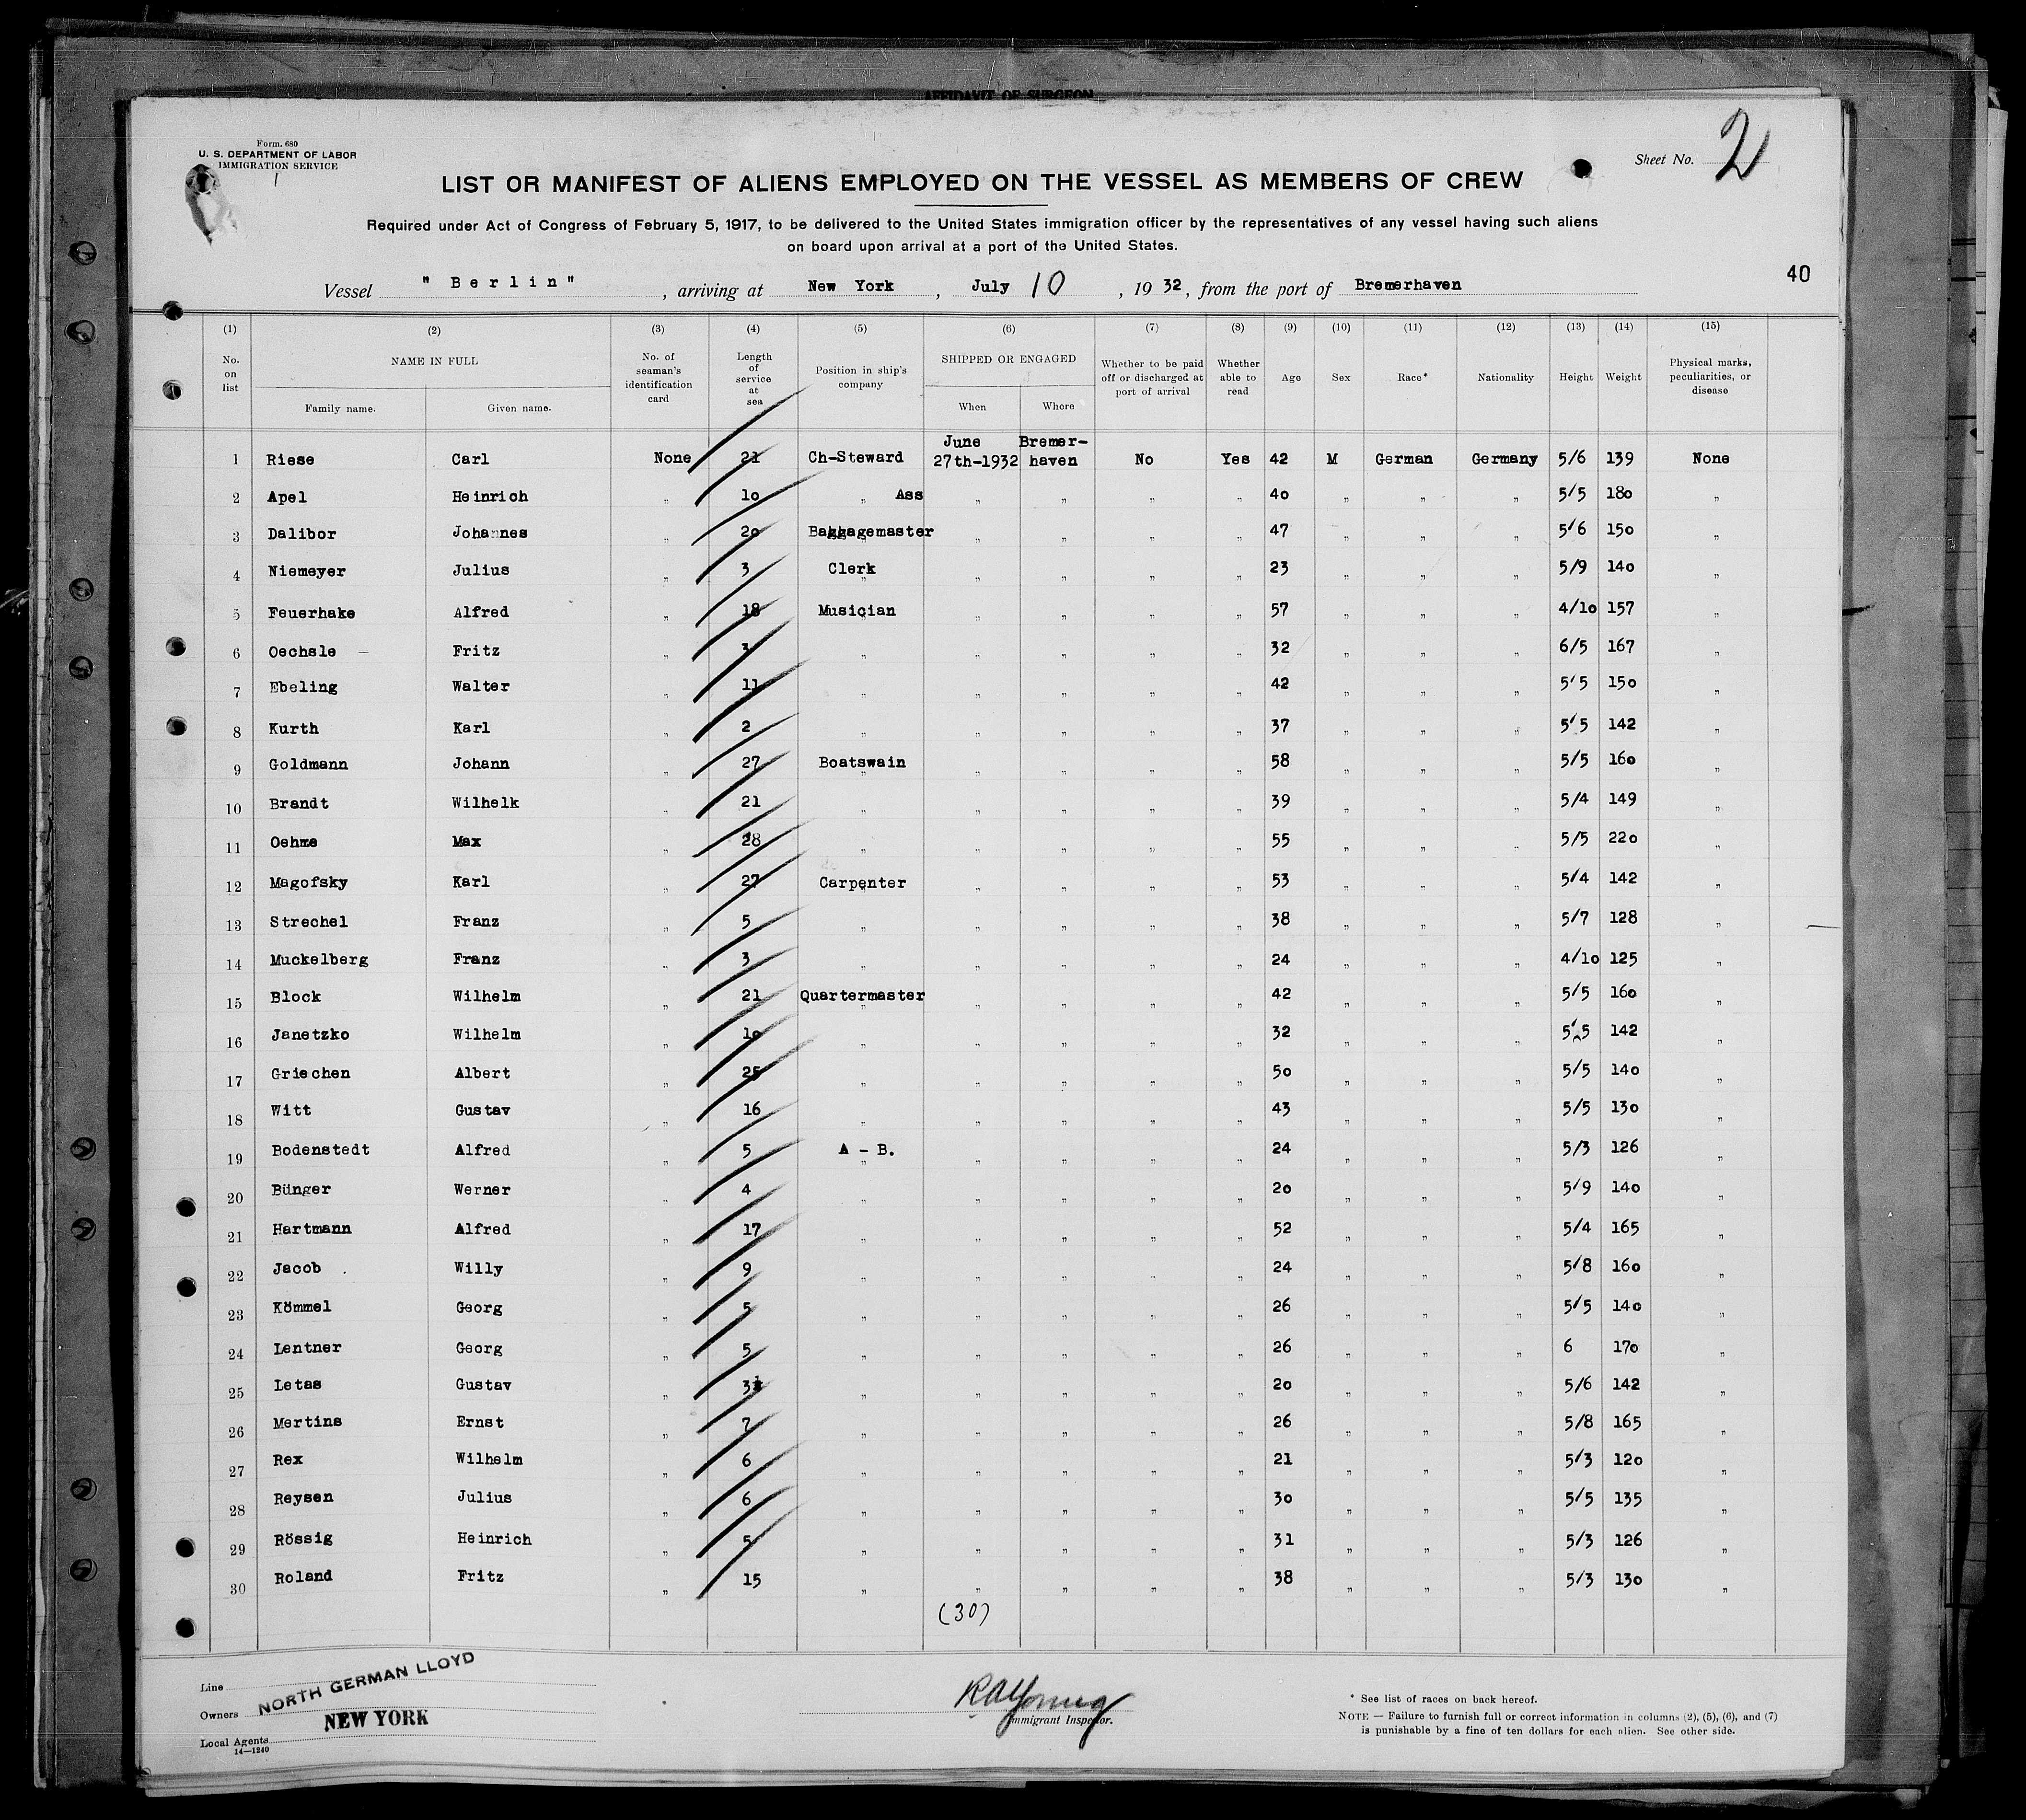 AFFIDAVIT OF SURGEON
Form. 680
U. S. DEPARTMENT OF LABOR
IMMIGRATION SERVICE
Sheet No. 2
LIST OR MANIFEST OF ALIENS EMPLOYED ON THE VESSEL AS MEMBERS OF CREW
Required under Act of Congress of February 5, 1917, to be delivered to the United States immigration officer by the representatives of any vessel having such aliens
on board upon arrival at a port of the United States.
40
Vessel "Berlin", arriving at New York, July 10, 1932, from the port of Bremerhaven
(1) (2) (3) (4) (5) (6) (7) (8) (9) (10) (11) (12) (13) (14) (15)
No. on list NAME IN FULL Family name. Given name. No. of seaman's identification card Length of service at sea Position in ship's company SHIPPED OR ENGAGED When Where Whether to be paid off or discharged at port of arrival Whether able to read Age Sex Race* Nationality Height Weight Physical marks, peculiarities, or disease
1 Riese Carl None 21 Ch-Steward June 27th-1932 Bremer-haven No Yes 42 M German Germany 5/6 139 None
2 Apel Heinrich " 10 " Ass " " " " 40 " " " 5/5 180 "
3 Dalibor Johannes " 20 Baggagemaster " " " " 47 " " " 5/6 150 "
4 Niemeyer Julius " 3 Clerk " " " " 23 " " " 5/9 140 "
5 Feuerhake Alfred " 18 Musician " " " " 57 " " " 4/10 157 "
6 Oechsle Fritz " 3 " " " " " 32 " " " 6/5 167 "
7 Ebeling Walter " 11 " " " " " 42 " " " 5/5 150 "
8 Kurth Karl " 2 " " " " " 37 " " " 5/5 142 "
9 Goldmann Johann " 27 Boatswain " " " " 58 " " " 5/5 160 "
10 Brandt Wilhelk " 21 " " " " " 39 " " " 5/4 149 "
11 Oehme Max " 28 " " " " " 55 " " " 5/5 220 "
12 Magofsky Karl " 27 Carpenter " " " " 53 " " " 5/4 142 "
13 Strechel Franz " 5 " " " " " 38 " " " 5/7 128 "
14 Muckelberg Franz " 3 " " " " " 24 " " " 4/10 125 "
15 Block Wilhelm " 21 Quartermaster " " " " 42 " " " 5/5 160 "
16 Janetzko Wilhelm " 10 " " " " " 32 " " " 5/5 142 "
17 Griechen Albert " 25 " " " " " 50 " " " 5/5 140 "
18 Witt Gustav " 16 " " " " " 43 " " " 5/5 130 "
19 Bodenstedt Alfred " 5 A - B. " " " " 24 " " " 5/3 126 "
20 Bünger Werner " 4 " " " " " 20 " " " 5/9 140 "
21 Hartmann Alfred " 17 " " " " " 52 " " " 5/4 165 "
22 Jacob Willy " 9 " " " " " 24 " " " 5/8 160 "
23 Kömmel Georg " 5 " " " " " 26 " " " 5/5 140 "
24 Lentner Georg " 5 " " " " " 26 " " " 6 170 "
25 Letas Gustav " 3 " " " " " 20 " " " 5/6 142 "
26 Mertins Ernst " 7 " " " " " 26 " " " 5/8 165 "
27 Rex Wilhelm " 6 " " " " " 21 " " " 5/3 120 "
28 Reysen Julius " 6 " " " " " 30 " " " 5/5 135 "
29 Rössig Heinrich " 5 " " " " " 31 " " " 5/3 126 "
30 Roland Fritz " 15 " " " " " 38 " " " 5/3 130 "
(30)
Line
Owners NORTH GERMAN LLOYD
NEW YORK
Local Agents
14—1240
RAYoung
Immigrant Inspector.
* See list of races on back hereof.
NOTE — Failure to furnish full or correct information in columns (2), (5), (6), and (7)
is punishable by a fine of ten dollars for each alien. See other side.